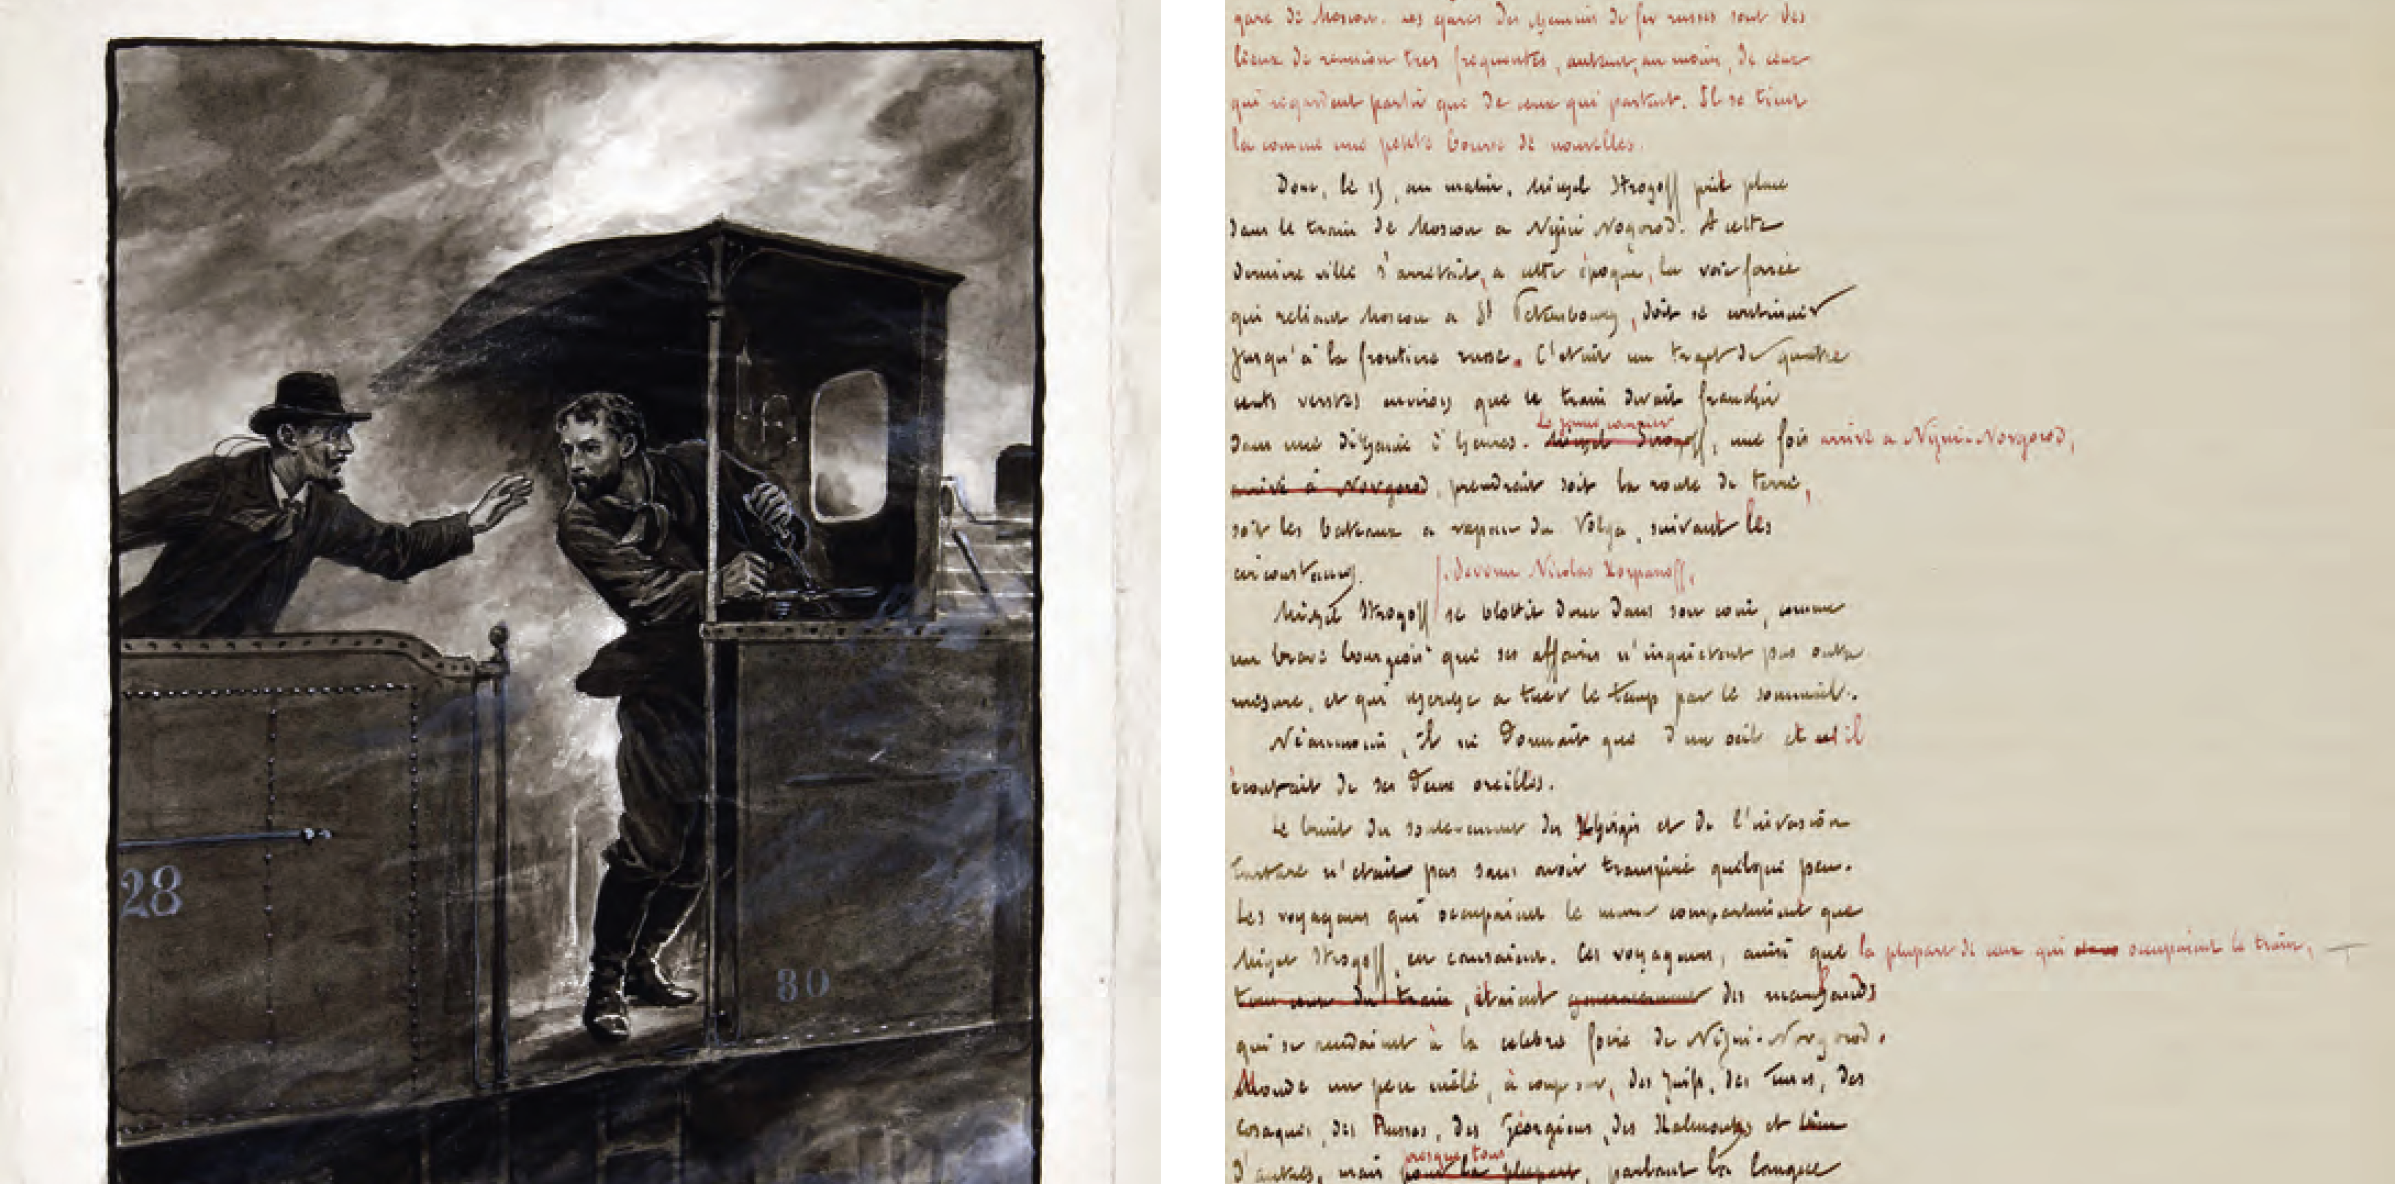 28
80
gare de Moscou. Les gares des chemins de fer russes sont des
lieux de réunion très fréquentés, autant, au moins, de ceux
qui regardent partir que de ceux qui partent. Il se tient
là comme une petite bourse de nouvelles.
Donc, le 15, au matin, Michel Strogoff prit place
dans le train de Moscou a Nijni Novgorod. A cette
dernière ville s'arrêtait, a cette époque, la voie ferrée
qui reliant Moscou a St Petersbourg, doit se continuer
jusqu'à la frontière russe. C'était un trajet de quatre
cents verstes environ que le train devait franchir
Le jeune courrier
dans une dizaine d'heures. Michel Strogoff, une fois arrivé a Nijni-Novgorod,
arrivé à Novgorod, prendrait soit la route de terre,
soit les bateaux a vapeur du Volga, suivant les
circonstances. devenu Nicolas Korpanoff,
Michel Strogoff se blottit donc dans son coin, comme
un brave bourgeois que ses affaires n'inquiètent pas outre
mesure, et qui cherche a tuer le temps par le sommeil.
Néanmoins, il ne dormait que d'un oeil et il
écoutait de ses deux oreilles.
Le bruit du soulèvement des Khirgis et de l'invasion
tartare n'était pas sans avoir transpiré quelque peu.
Les voyageurs qui occupaient le même compartiment que
Michel Strogoff, en causaient. Ces voyageurs, ainsi que la plupart de ceux qui occupaient le train,
tous ceux du train, étaient généralement des marchands
qui se rendaient à la célèbre foire de Nijni-Novgorod.
Monde un peu mêlé, à coup sur, des Juifs, des Turcs, des
Cosaques, des Russes, des Géorgiens, des Kalmouks et bien
presque tous
d'autres, mais pour la plupart, parlant la langue